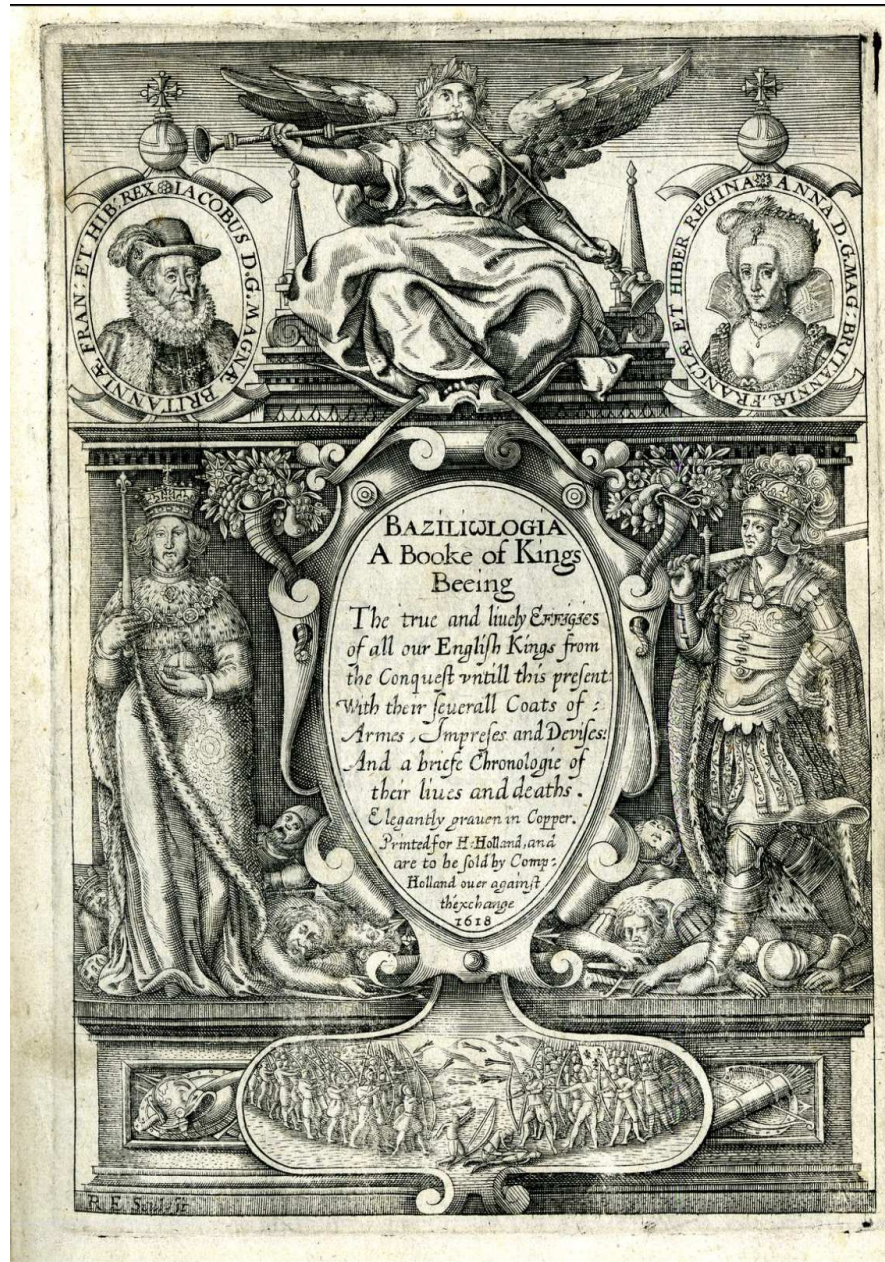 IACOBUS D.G. MAGNÆ BRITANNIÆ FRAN: ET HIB: REX
ANNA D.G. MAG: BRITANNIÆ, FRANCIÆ ET HIBER REGINA
BAZILIωLOGIA
A Booke of Kings
Beeing
The true and liuely Effigies
of all our Engliſh Kings from
the Conqueſt vntill this preſent:
With their ſeuerall Coats of :
Armes, Impreſes and Deviſes:
And a briefe Chronologie of
their liues and deaths.
Elegantly grauen in Copper.
Printed for H: Holland, and
are to be ſold by Comp:
Holland ouer againſt
th'exchange
1618
R. E. Sculpſit